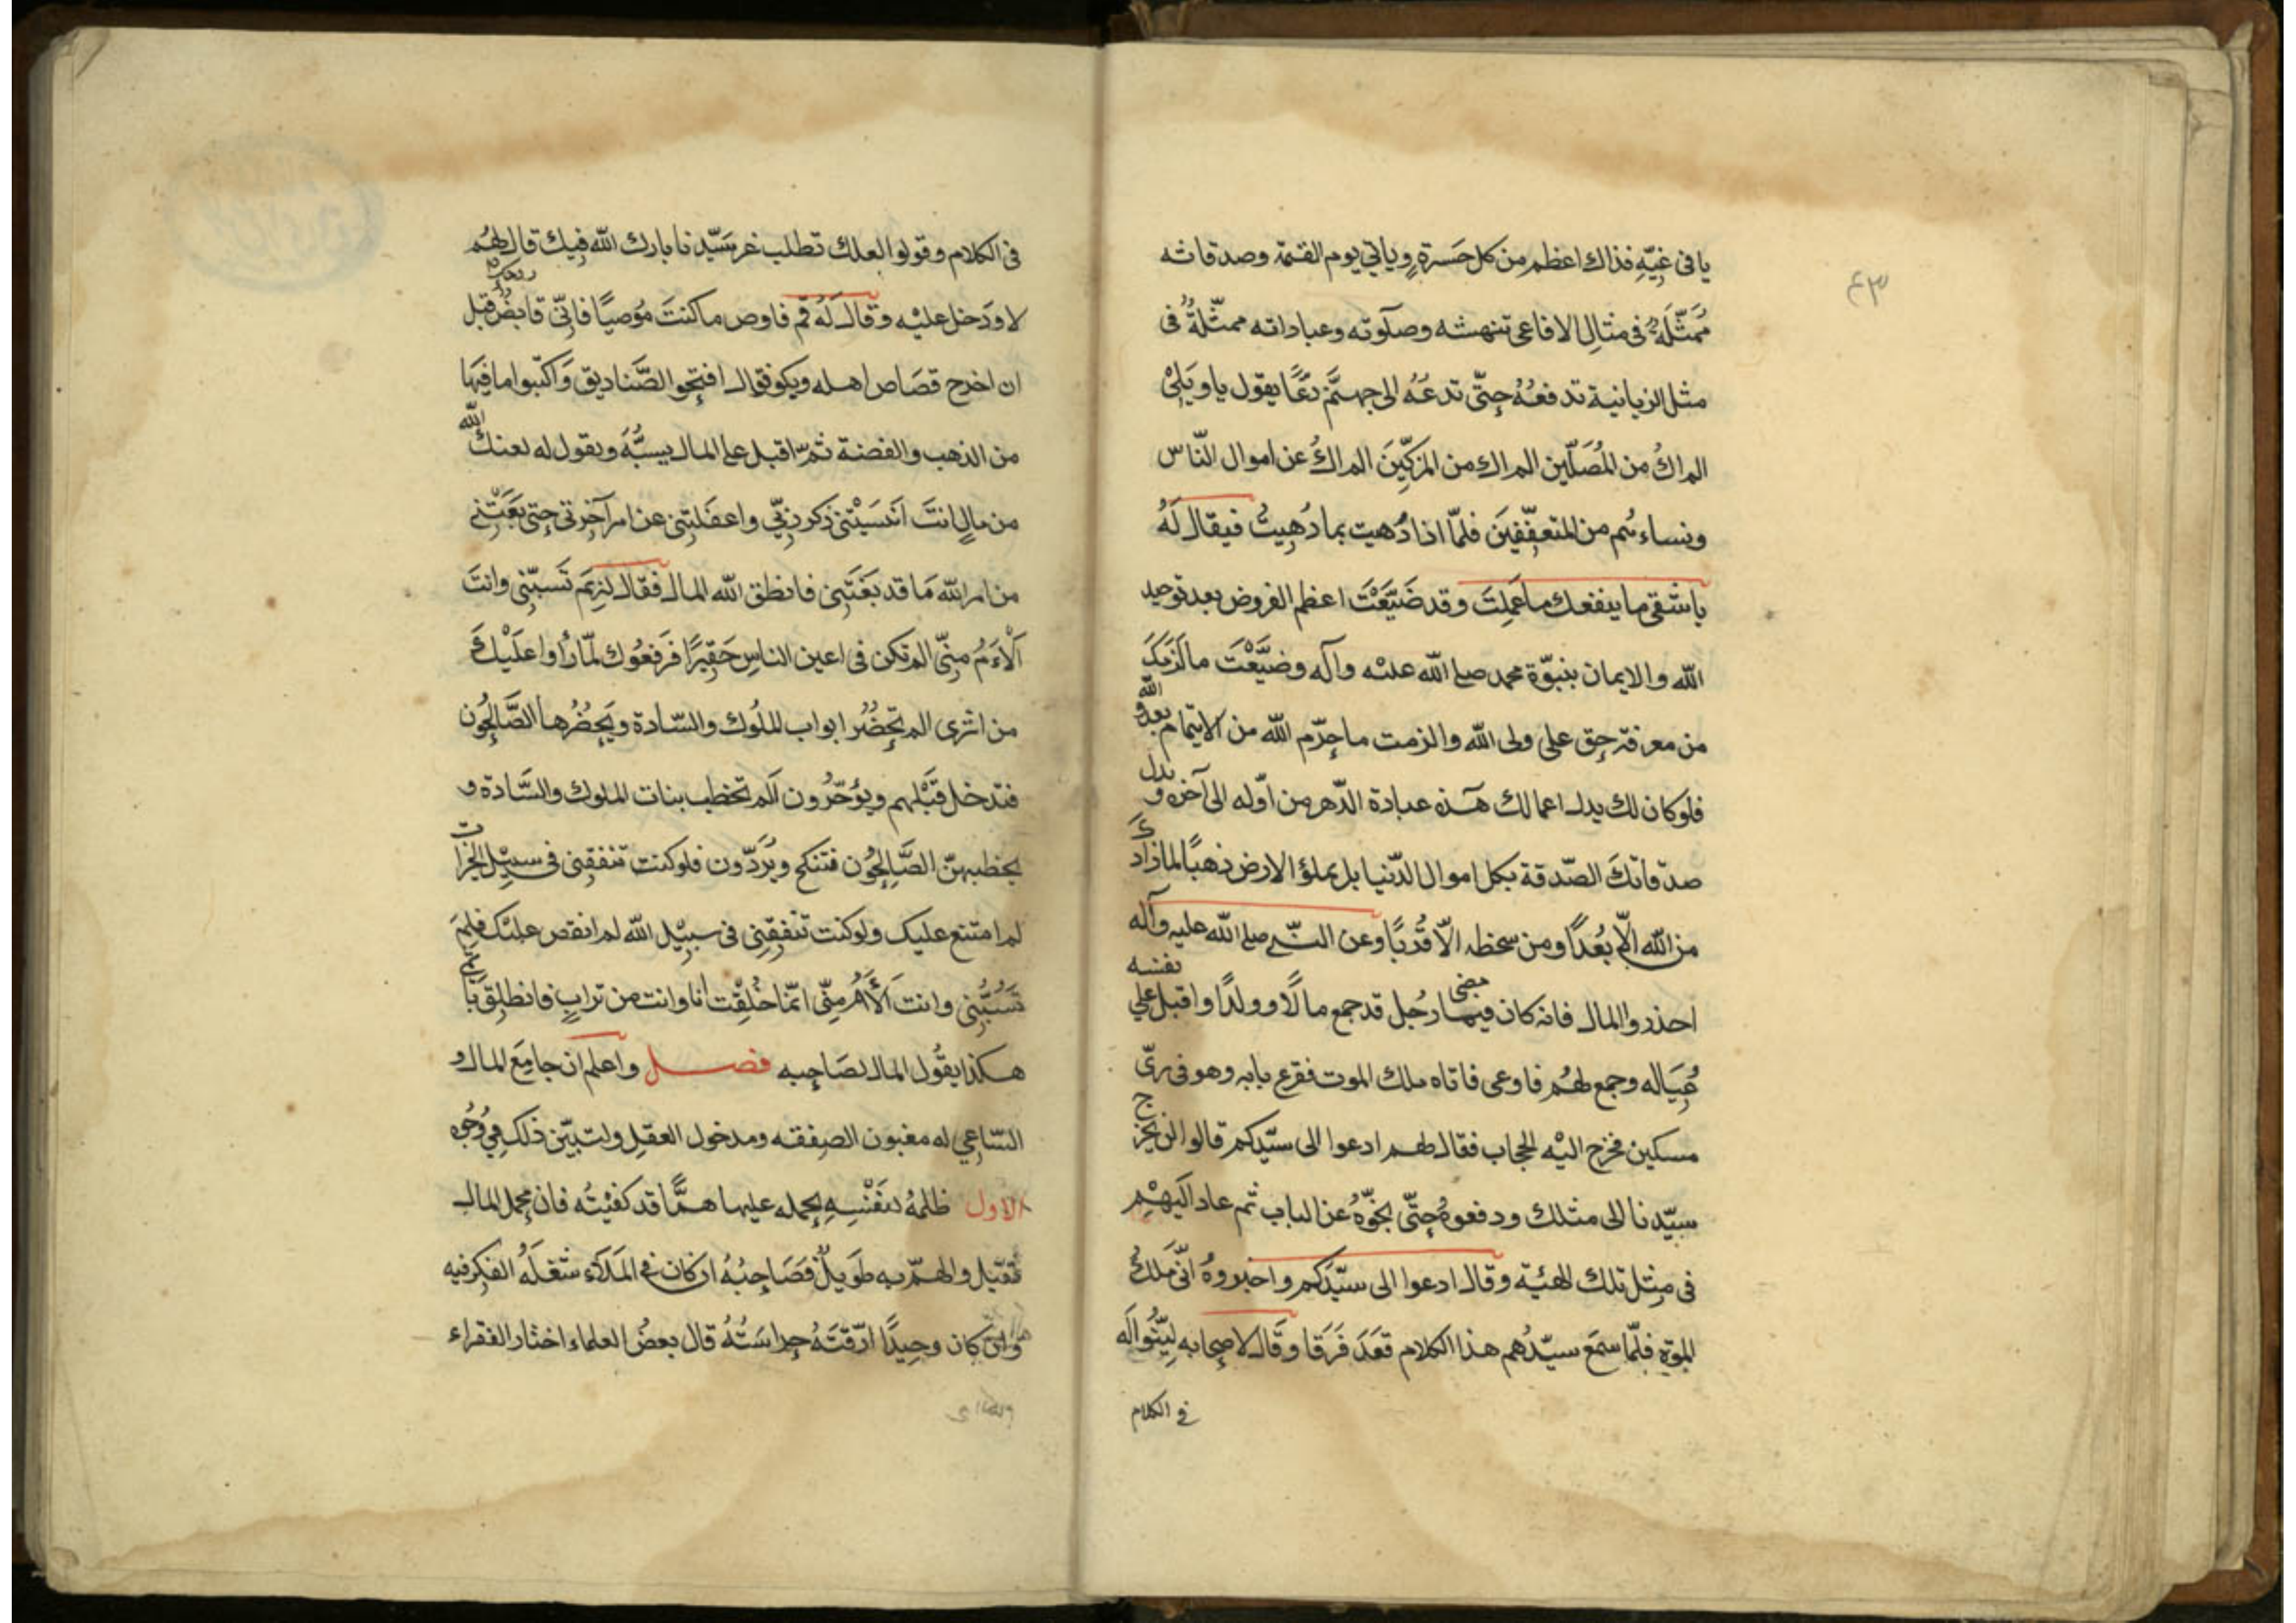 ٤٣
يا فى غيّه فذاك اعظم من كل حَسرةٍ وياتى يوم القيمة وصدقاته
مُمَثَّلَةٌ فى مثالِ الافاعى تنهشه وصلوته وعباداته ممثّلةٌ فى
مثل الزبانية تدفعُهُ حتّى تدعّهُ الى جهنّم دَعًّا يقول ياويَلِىْ
الم اكُ من المُصَلّين الم اك من المزكّين الم اكُ عن اموال النّاس
ونساءهم من المتعفّفينَ فلمّا ذا دُهيت بما دُهيتُ فيقال لَهُ
ياشقى ما ينفعك ما عَمِلتَ وقد ضَيَّعْتَ اعظم الفروض بعد توحيد
الله والايمان بنبوّة محمد صلى الله عليه وآله وضيَّعْتَ ما لَزِمَكَ
من معرفة حق على ولى الله والزمت ما حرّم الله من الايتمام بعدوّ الله
فلو كان لك بدل اعمالك هذه عبادة الدّهر من اوّله الى آخره و بدل
صدقاتكَ الصّدقة بكل اموال الدّنيا بل بملؤ الارض ذهبًا لما زادَكَ
من الله الّا بُعْدًا ومن سخطه الّا قُربًا وعن النبى صلى الله عليه وآله
احذروا المال فانه كان فيما مضى رجُل قد جمع مالًا وولدًا واقبل على نفسه
عِيَاله وجمع لهُم فاوعى فاتاه ملك الموت فقرع بابه وهو فى زىّ
مسكين فخرج اليْه الحجاب فقال لهم ادعوا الى سيّدكم قالوا لن يخرج
سيّدنا الى مثلك ودفعوهُ حتّى نحّوْهُ عن الباب ثم عاد اليَهْم
فى مِثل تلك الهيئة وقال ادعوا الى سيّدكم واخبروهُ انّى مَلكُ
الموت فلمّا سمعَ سيّدُهم هذا الكلام قعَدَ فَرَقا وقَال لاصحابه ليّنُوا لَه
فى الكلام
فى الكلام وقولوا لعلك تطلب غير سَيّدنا بارك الله فيك قال لهُم
لا ودخل عليْه وقال لَهُ قم فاوص ما كنتَ مُوصيًا فانّى قابضٌ روحك قبل
ان اخرج فصَاح اهله وبكوا فقال افتحوا الصَّناديق وَاكتبوا ما فيهَا
من الذهب والفضة ثمّ اقبل على المال يسبُّهَ ويقول له لعنك الله
من مالٍ انتَ انْسَيْتنى ذكر ربّى واغفلتنى عن امر آخرتى حتى بغَتَنِى
من امر الله مَا قد بَغَتَنِى فانطق الله المال فقال لِمَ تَسبّنى وانتَ
اَلْاَمُ مِنّى الم تكن فى اعين الناسِ حَقِيرًا فرَفعُوك لمّا رأوا عليْك
من اثرى الم تحضُر ابواب الملُوك والسّادة ويَحضُرها الصَّالحُون
فتدخل قَبْلهم ويؤخّرُون اَلَم تخطب بنات الملوك والسَّادة و
يخطبهنّ الصَّالِحُون فتنكح ويُرَدّون فلو كنت تنفقنى فى سبيْل الخيرات
لم امتنع عليك ولو كنت تنفِقنِى فى سبيْل الله لم انقص عليك فلِمَ
تَسُبُّنِى وانت اَلْاَمُ مِنّى انّما خُلِقْت انا وانت من ترابٍ فانطلِق
هكذا يقُول المال لصَاحِبه فصل واعلم ان جامِعَ المال و
السّاعِي له مغبون الصفقه ومدخول العقل ولنبيّن ذلك فى وُجُوه
الاول ظلمهُ لنَفْسِهِ بحمله عليها همًّا قد كفيْتُه فان محمل المال
ثقيل والهمّ به طَوِيلٌ فصَاحِبُهُ ان كان فى المَلَاء شغلَهُ الفكر فيه
وان كان وحِيدًا ارّقتَهُ حراسَتُهُ قال بعضُ العلماء اختار الفقراء